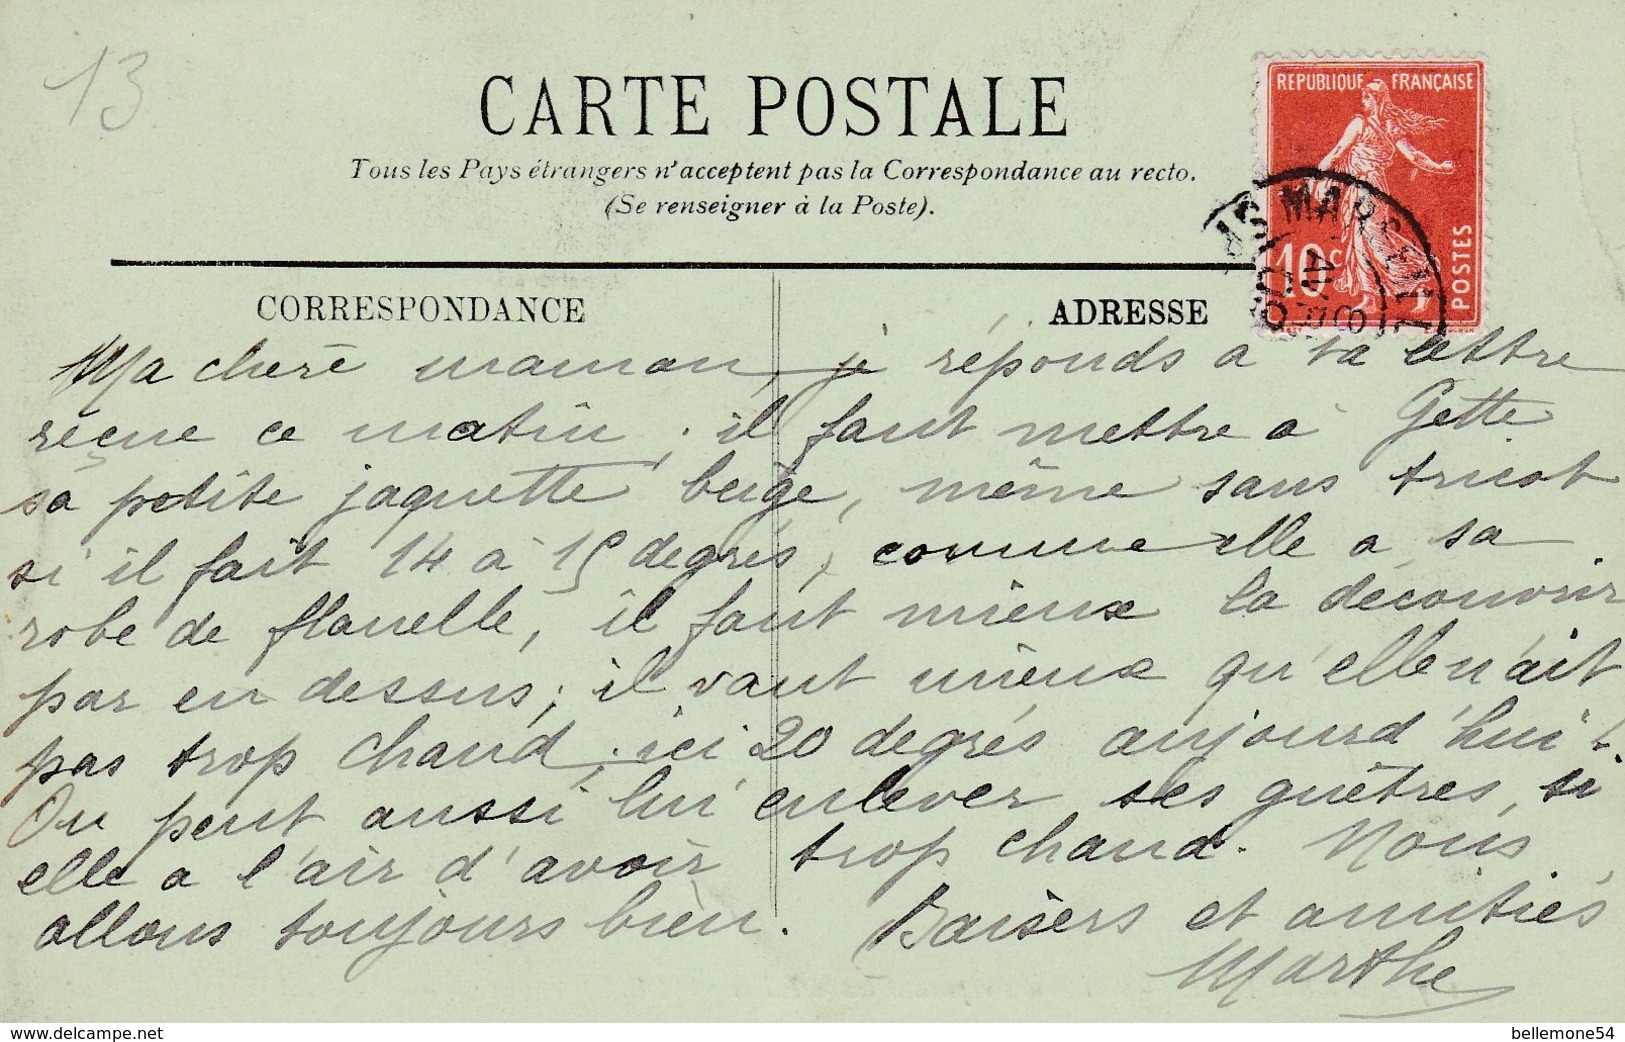 13
CARTE POSTALE
Tous les Pays étrangers n'acceptent pas la Correspondance au recto.
(Se renseigner à la Poste).
REPUBLIQUE FRANÇAISE
10c
POSTES
MARSEILLE
CORRESPONDANCE
ADRESSE
Ma chère maman, je réponds a ta lettre
reçue ce matin ; il faut mettre à Gette
sa petite jaquette beige, même sans tricot
si il fait 14 à 15 degrés, comme elle a sa
robe de flanelle, il faut mieux la découvrir
par en dessus; il vaut mieux qu'elle n'ait
pas trop chaud ; ici 20 degrés aujourd'hui !.
On peut aussi lui enlever ses guêtres, si
elle a l'air d'avoir trop chaud. Nous
allons toujours bien. Baisers et amitiés
Marthe
www.delcampe.net
bellemone54